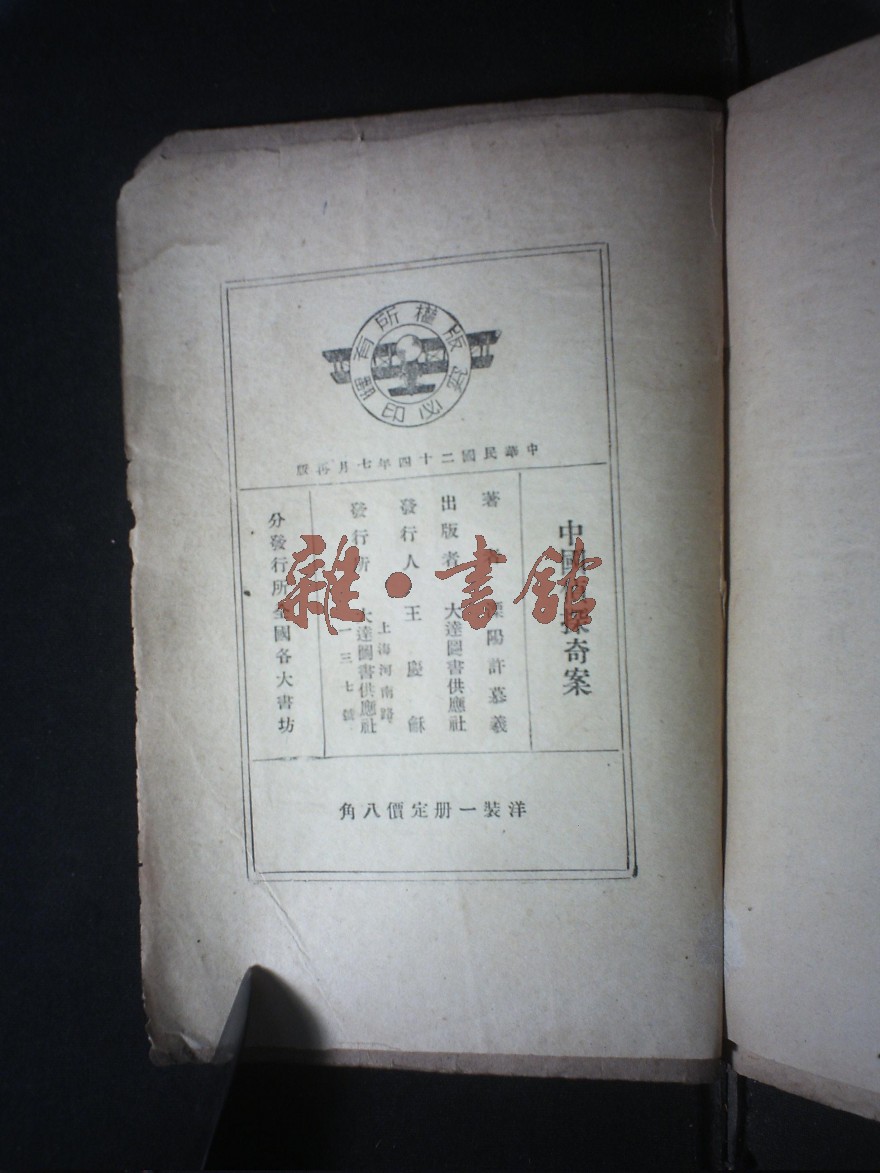 版權所有翻印必究
中華民國二十四年七月再版
中國偵探奇案
著者 溧陽許慕義
出版者 大達圖書供應社
發行人 王慶龢
發行所 大達圖書供應社
上海河南路
一三七號
分發行所全國各大書坊
洋裝一册定價八角
雜·書館